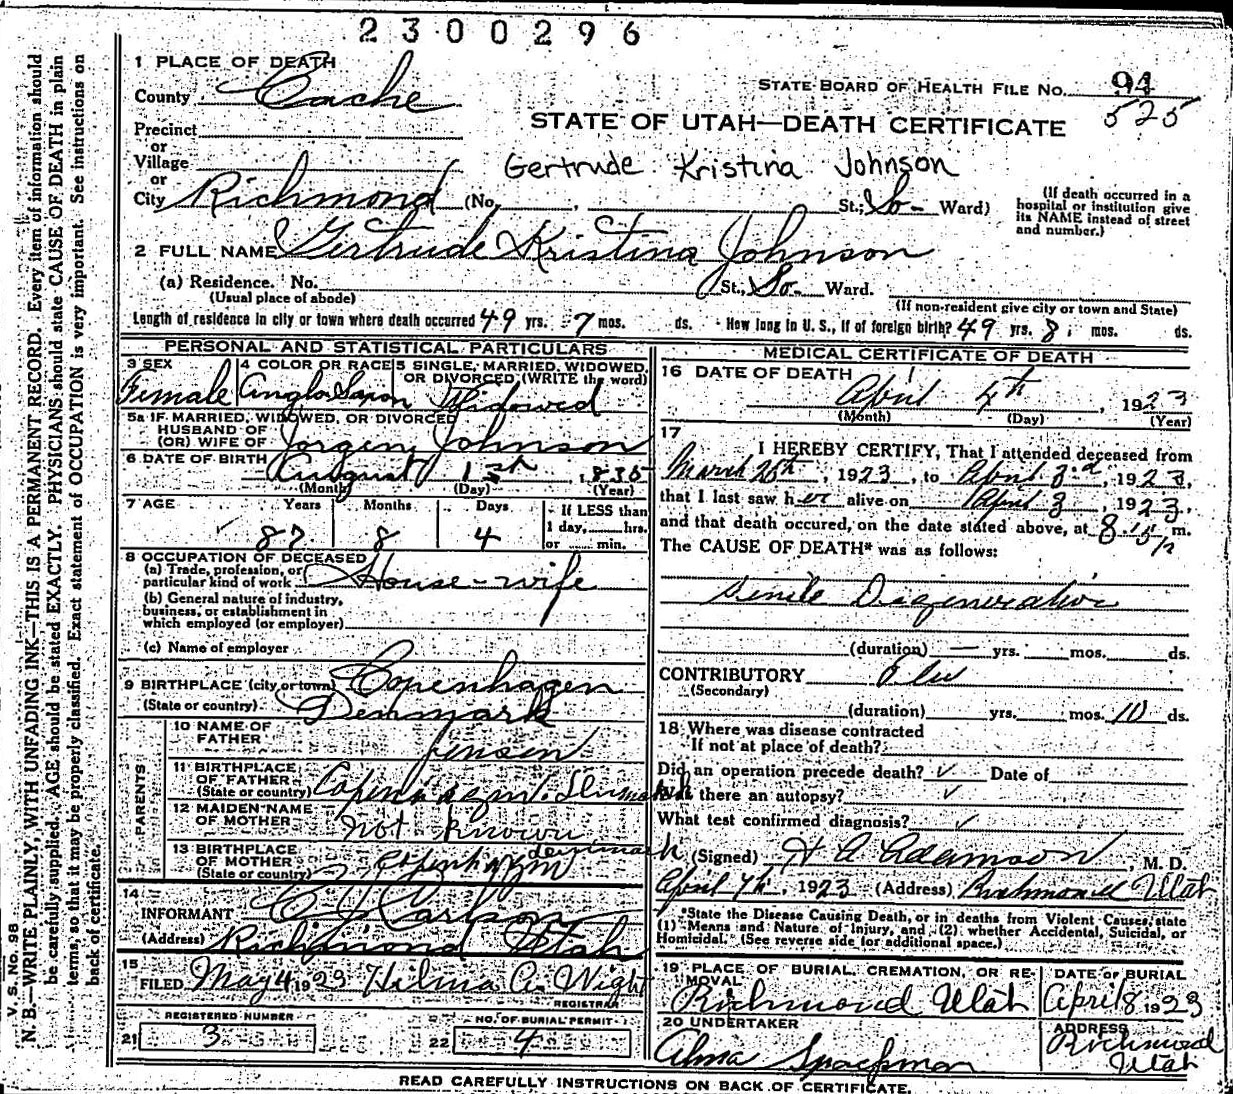 2300296
1 PLACE OF DEATH
County Cache
STATE BOARD OF HEALTH FILE No. 94
525
STATE OF UTAH—DEATH CERTIFICATE
Precinct
or
Village
or
Gertrude Kristina Johnson
City Richmond (No. , St.; So- Ward)
(If death occurred in a hospital or institution give its NAME instead of street and number.)
2 FULL NAME Gertrude Kristina Johnson
(a) Residence. No. St., So- Ward.
(Usual place of abode) (If non-resident give city or town and State)
Length of residence in city or town where death occurred 49 yrs. 7 mos. ds. How long in U. S., if of foreign birth? 49 yrs. 8 mos. ds.
PERSONAL AND STATISTICAL PARTICULARS
3 SEX
Female
4 COLOR OR RACE
Anglo Saxon
5 SINGLE, MARRIED, WIDOWED,
OR DIVORCED (WRITE the word)
Widowed
5a IF MARRIED, WIDOWED, OR DIVORCED
HUSBAND OF
(OR) WIFE OF Jorgen Johnson
6 DATE OF BIRTH August 1st 1835
(Month) (Day) (Year)
7 AGE Years Months Days
87 8 4
If LESS than
1 day, hrs.
or min.
8 OCCUPATION OF DECEASED
(a) Trade, profession, or
particular kind of work House-wife
(b) General nature of industry,
business, or establishment in
which employed (or employer)
(c) Name of employer
9 BIRTHPLACE (city or town) Copenhagen
(State or country) Denmark
PARENTS
10 NAME OF
FATHER Jensen
11 BIRTHPLACE
OF FATHER
(State or country) Copenhagen. Denmark
12 MAIDEN NAME
OF MOTHER Not Known
13 BIRTHPLACE
OF MOTHER
(State or country) Copenhagen Denmark
14
INFORMANT C J Carlson
(Address) Richmond Utah
15
FILED May 4 1923 Hilma A. Wight
REGISTRAR
REGISTERED NUMBER
21 3
NO. OF BURIAL PERMIT
22 4
MEDICAL CERTIFICATE OF DEATH
16 DATE OF DEATH
April 4th, 1923
(Month) (Day) (Year)
17
I HEREBY CERTIFY, That I attended deceased from
March 26th, 1923, to April 3rd, 1923,
that I last saw her alive on April 3, 1923,
and that death occured, on the date stated above, at m.
The CAUSE OF DEATH* was as follows:
Senile Degeneration
(duration) — yrs. mos. ds.
CONTRIBUTORY Flu
(Secondary)
(duration) yrs. mos. 10 ds.
18 Where was disease contracted
If not at place of death?
Did an operation precede death? ✓ Date of
Was there an autopsy? ✓
What test confirmed diagnosis? ✓
(Signed) H A Adamson, M. D.
April 7th, 1923 (Address) Richmond Utah
*State the Disease Causing Death, or in deaths from Violent Causes, state
(1) Means and Nature of Injury, and (2) whether Accidental, Suicidal, or
Homicidal. (See reverse side for additional space.)
19 PLACE OF BURIAL, CREMATION, OR RE-
MOVAL
Richmond Utah
DATE OF BURIAL
April 8 1923
20 UNDERTAKER
Alma Spackman
ADDRESS
Richmond
Utah
READ CAREFULLY INSTRUCTIONS ON BACK OF CERTIFICATE.
V. S. No. 98
N. B.—WRITE PLAINLY, WITH UNFADING INK—THIS IS A PERMANENT RECORD. Every item of information should
be carefully supplied. AGE should be stated EXACTLY. PHYSICIANS should state CAUSE OF DEATH in plain
terms, so that it may be properly classified. Exact statement of OCCUPATION is very important. See instructions on
back of certificate.